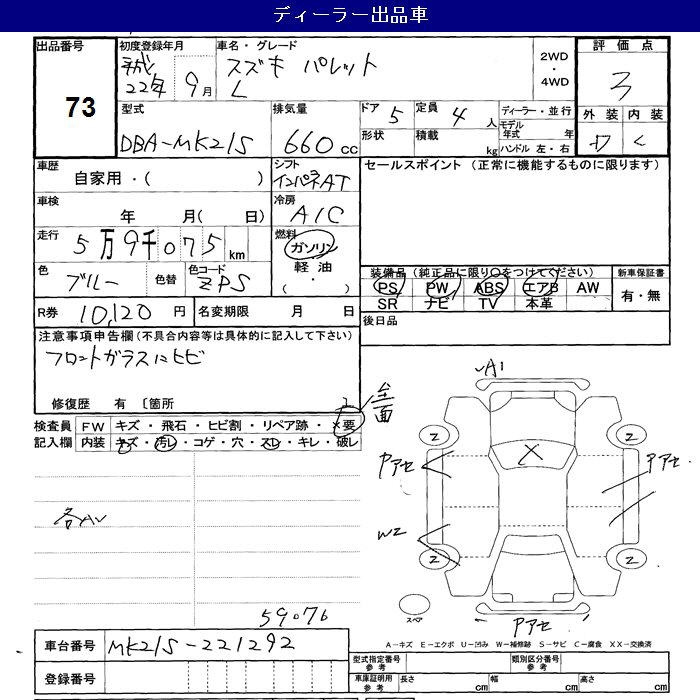 ディーラー出品車
出品番号
73
初度登録年月 車名・グレード
平成 22年 9月
スズキ パレット
L
2WD
・
4WD
評価点
3
外装 内装
D C
型式 排気量
DBA-MK21S 660cc
ドア 5 定員 4人
形状 積載 kg
ディーラー・並行
モデル年式 年
ハンドル 左・右
車歴
自家用・( )
シフト
インパネAT
車検
年 月( 日)
冷房
A/C
走行
5万9千075km
燃料
ガソリン
軽油
( ・ )
色
ブルー
色替
色コード
ZPS
R券 10,120円
名変期限 月 日
セールスポイント (正常に機能するものに限ります)
装備品(純正品に限り○をつけてください)
PS PW ABS エアB AW
SR ナビ TV 本革
新車保証書
有・無
後日品
注意事項申告欄(不具合内容等は具体的に記入して下さい)
フロントガラスにヒビ
修復歴 有 〔箇所
検査員記入欄
FW キズ・飛石・ヒビ割・リペア跡・×要
内装 キズ・汚レ・コゲ・穴・スレ・キレ・破レ
全面
各AU
59076
A1
2
2
X
Pアセ
Pアセ
W2
2
2
Pアセ
スペア
A-キズ E-エクボ U-凹み W-補修跡 S-サビ C-腐食 XX-交換済
車台番号 MK21S-221292
登録番号
型式指定番号 参考
類別区分番号 参考
車庫証明用 参考
長さ cm 幅 cm 高さ cm